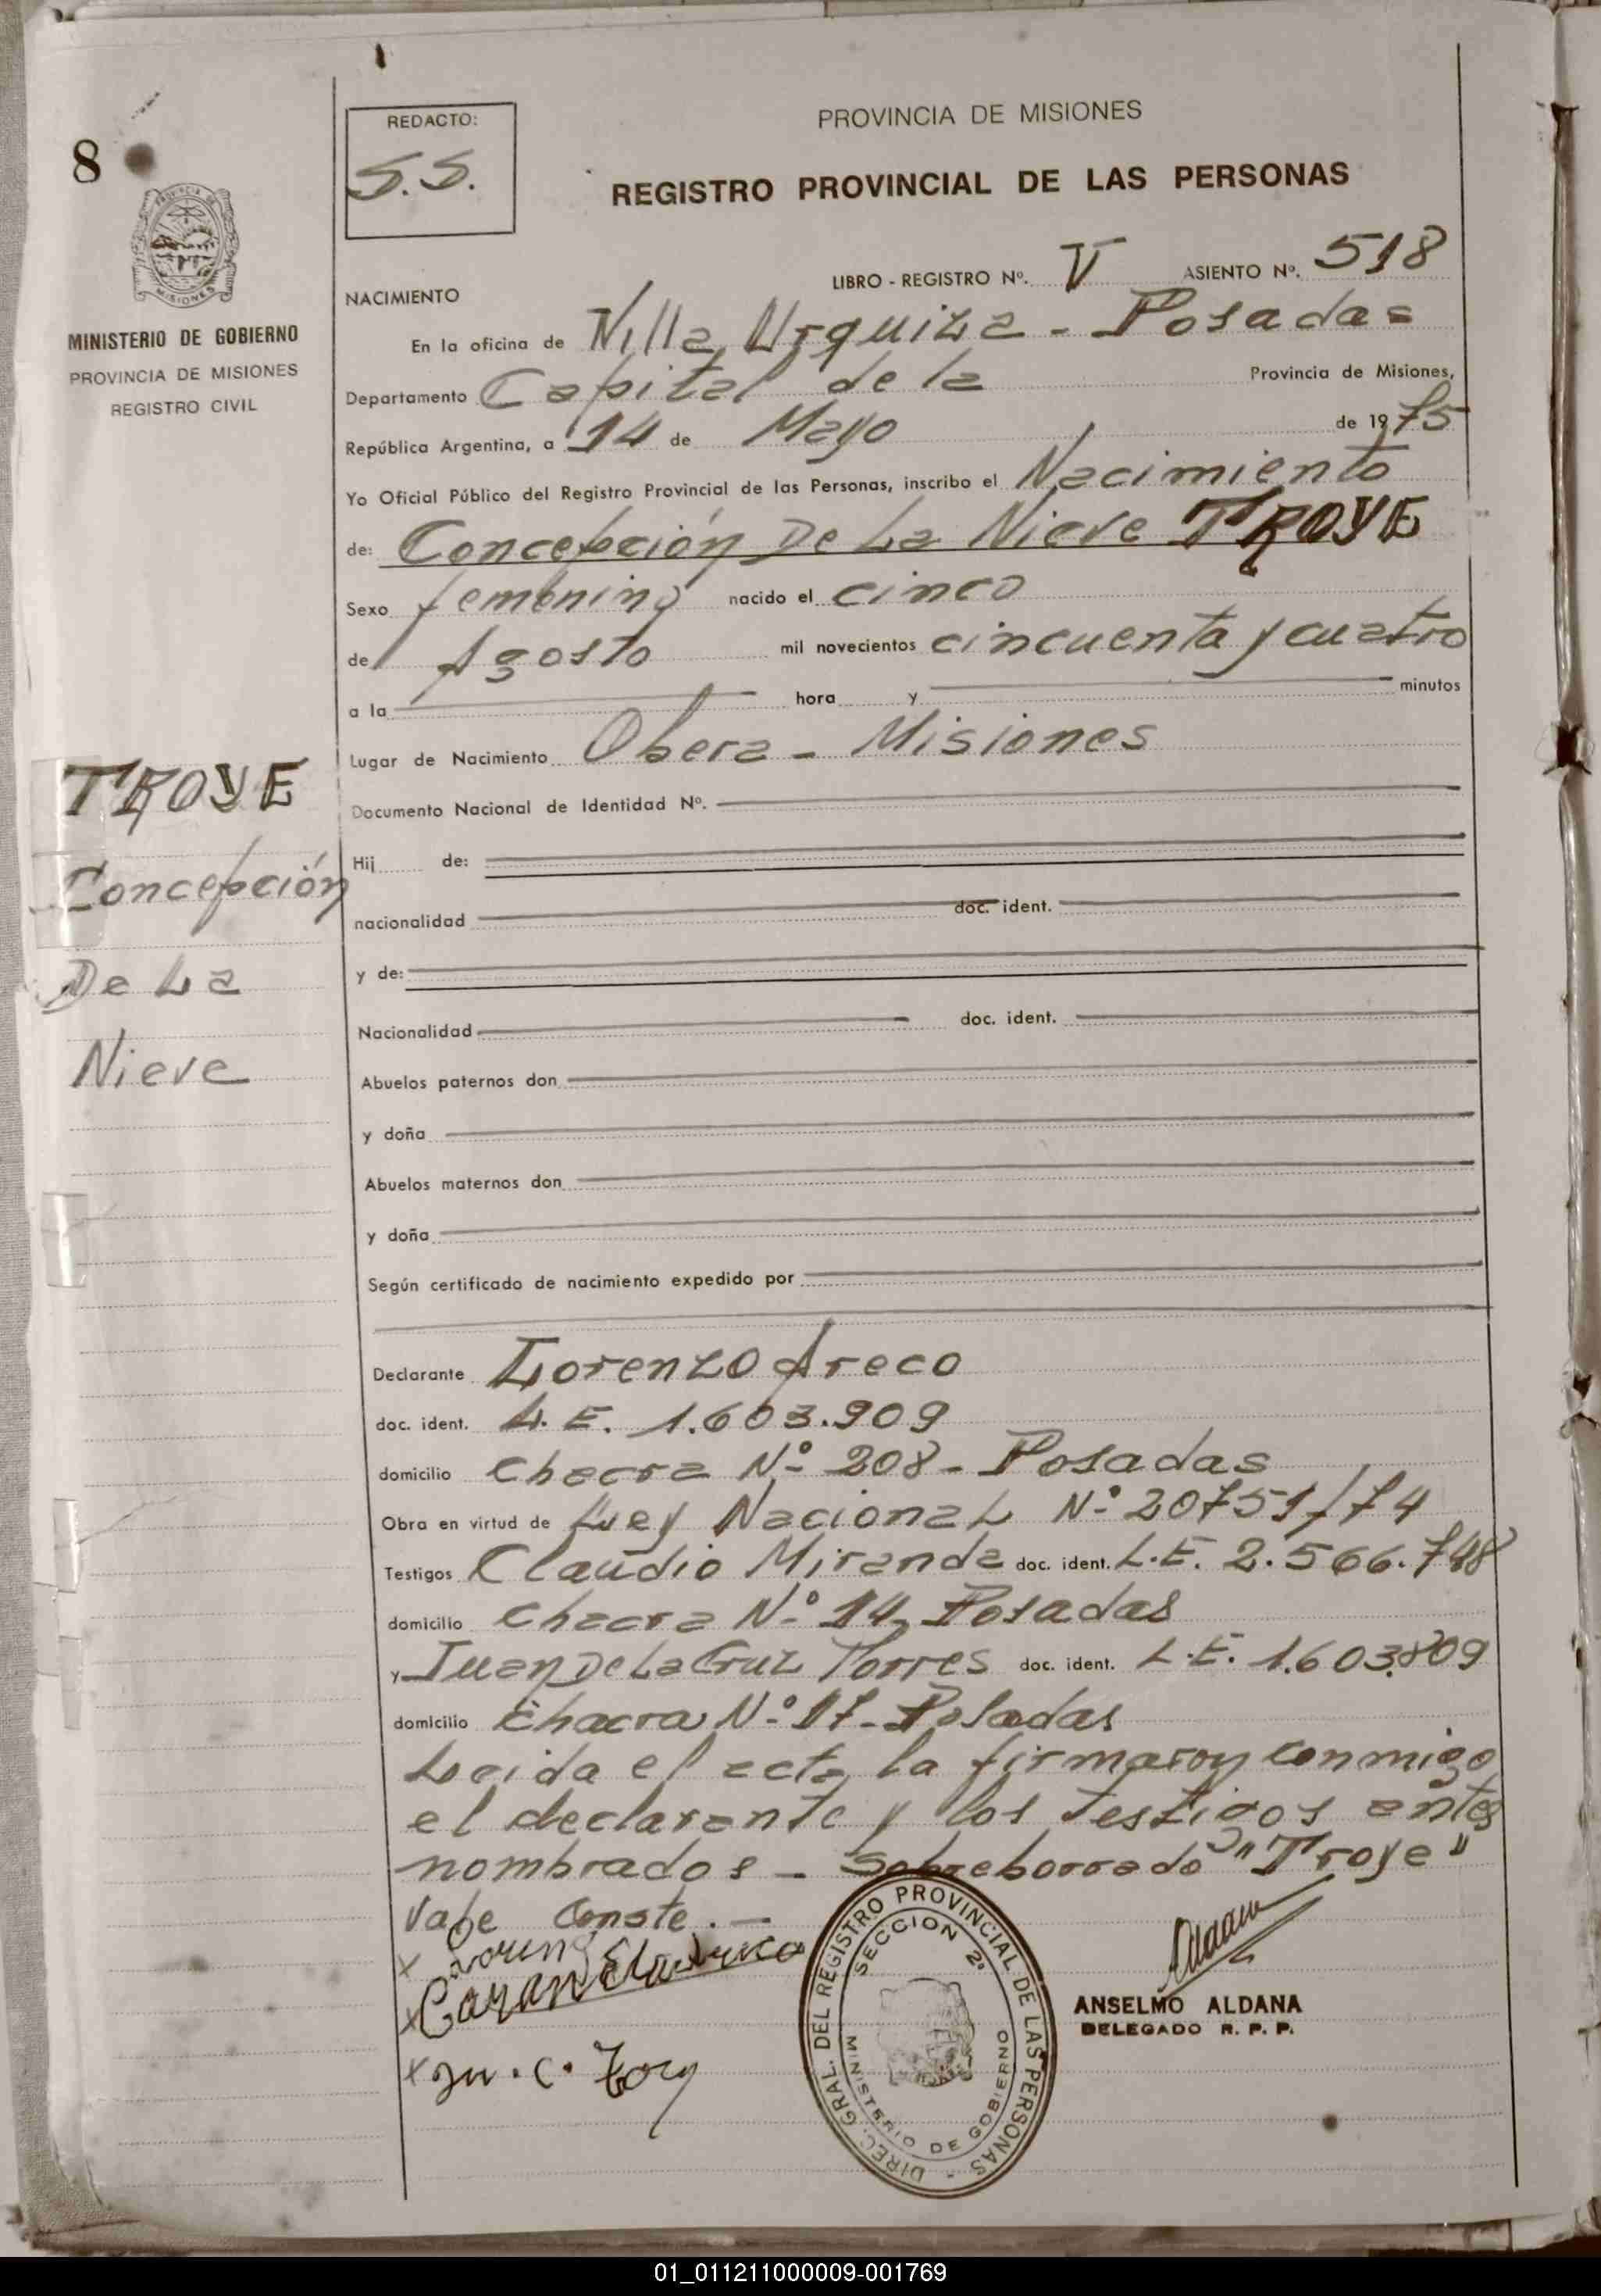 8
REDACTO:
S.S.
PROVINCIA DE MISIONES
REGISTRO PROVINCIAL DE LAS PERSONAS
PROVINCIA DE
MISIONES
MINISTERIO DE GOBIERNO
PROVINCIA DE MISIONES
REGISTRO CIVIL
LIBRO - REGISTRO Nº. V ASIENTO Nº. 518
NACIMIENTO
En la oficina de Villa Urquiza - Posadas
Departamento Capital de la Provincia de Misiones,
República Argentina, a 14 de Mayo de 1975
Yo Oficial Público del Registro Provincial de las Personas, inscribo el Nacimiento
de: Concepción De La Nieve TROYE
Sexo femenino nacido el cinco
de Agosto mil novecientos cincuenta y cuatro
a la hora y minutos
Lugar de Nacimiento Obera - Misiones
TROYE
Concepción
De La
Nieve
Documento Nacional de Identidad Nº.
Hij de:
nacionalidad doc. ident.
y de:
Nacionalidad doc. ident.
Abuelos paternos don
y doña
Abuelos maternos don
y doña
Según certificado de nacimiento expedido por
Declarante Lorenzo Areco
doc. ident. L.E. 1.603.909
domicilio Chacra Nº 208 - Posadas
Obra en virtud de Ley Nacional Nº 20751/74
Testigos Claudio Miranda doc. ident. L.E. 2.566.748
domicilio Chacra Nº 14, Posadas
y Juan De La Cruz Torres doc. ident. L.E. 1.603.809
domicilio Chacra Nº 17 - Posadas
Leida el acta, la firmaron conmigo
el declarante y los testigos antes
nombrados - Sobreborrado "Troye"
Vale Conste. -
DIREC. GRAL. DEL REGISTRO PROVINCIAL DE LAS PERSONAS -
SECCION 2º
MINISTERIO DE GOBIERNO
ANSELMO ALDANA
DELEGADO R. P. P.
01_011211000009-001769